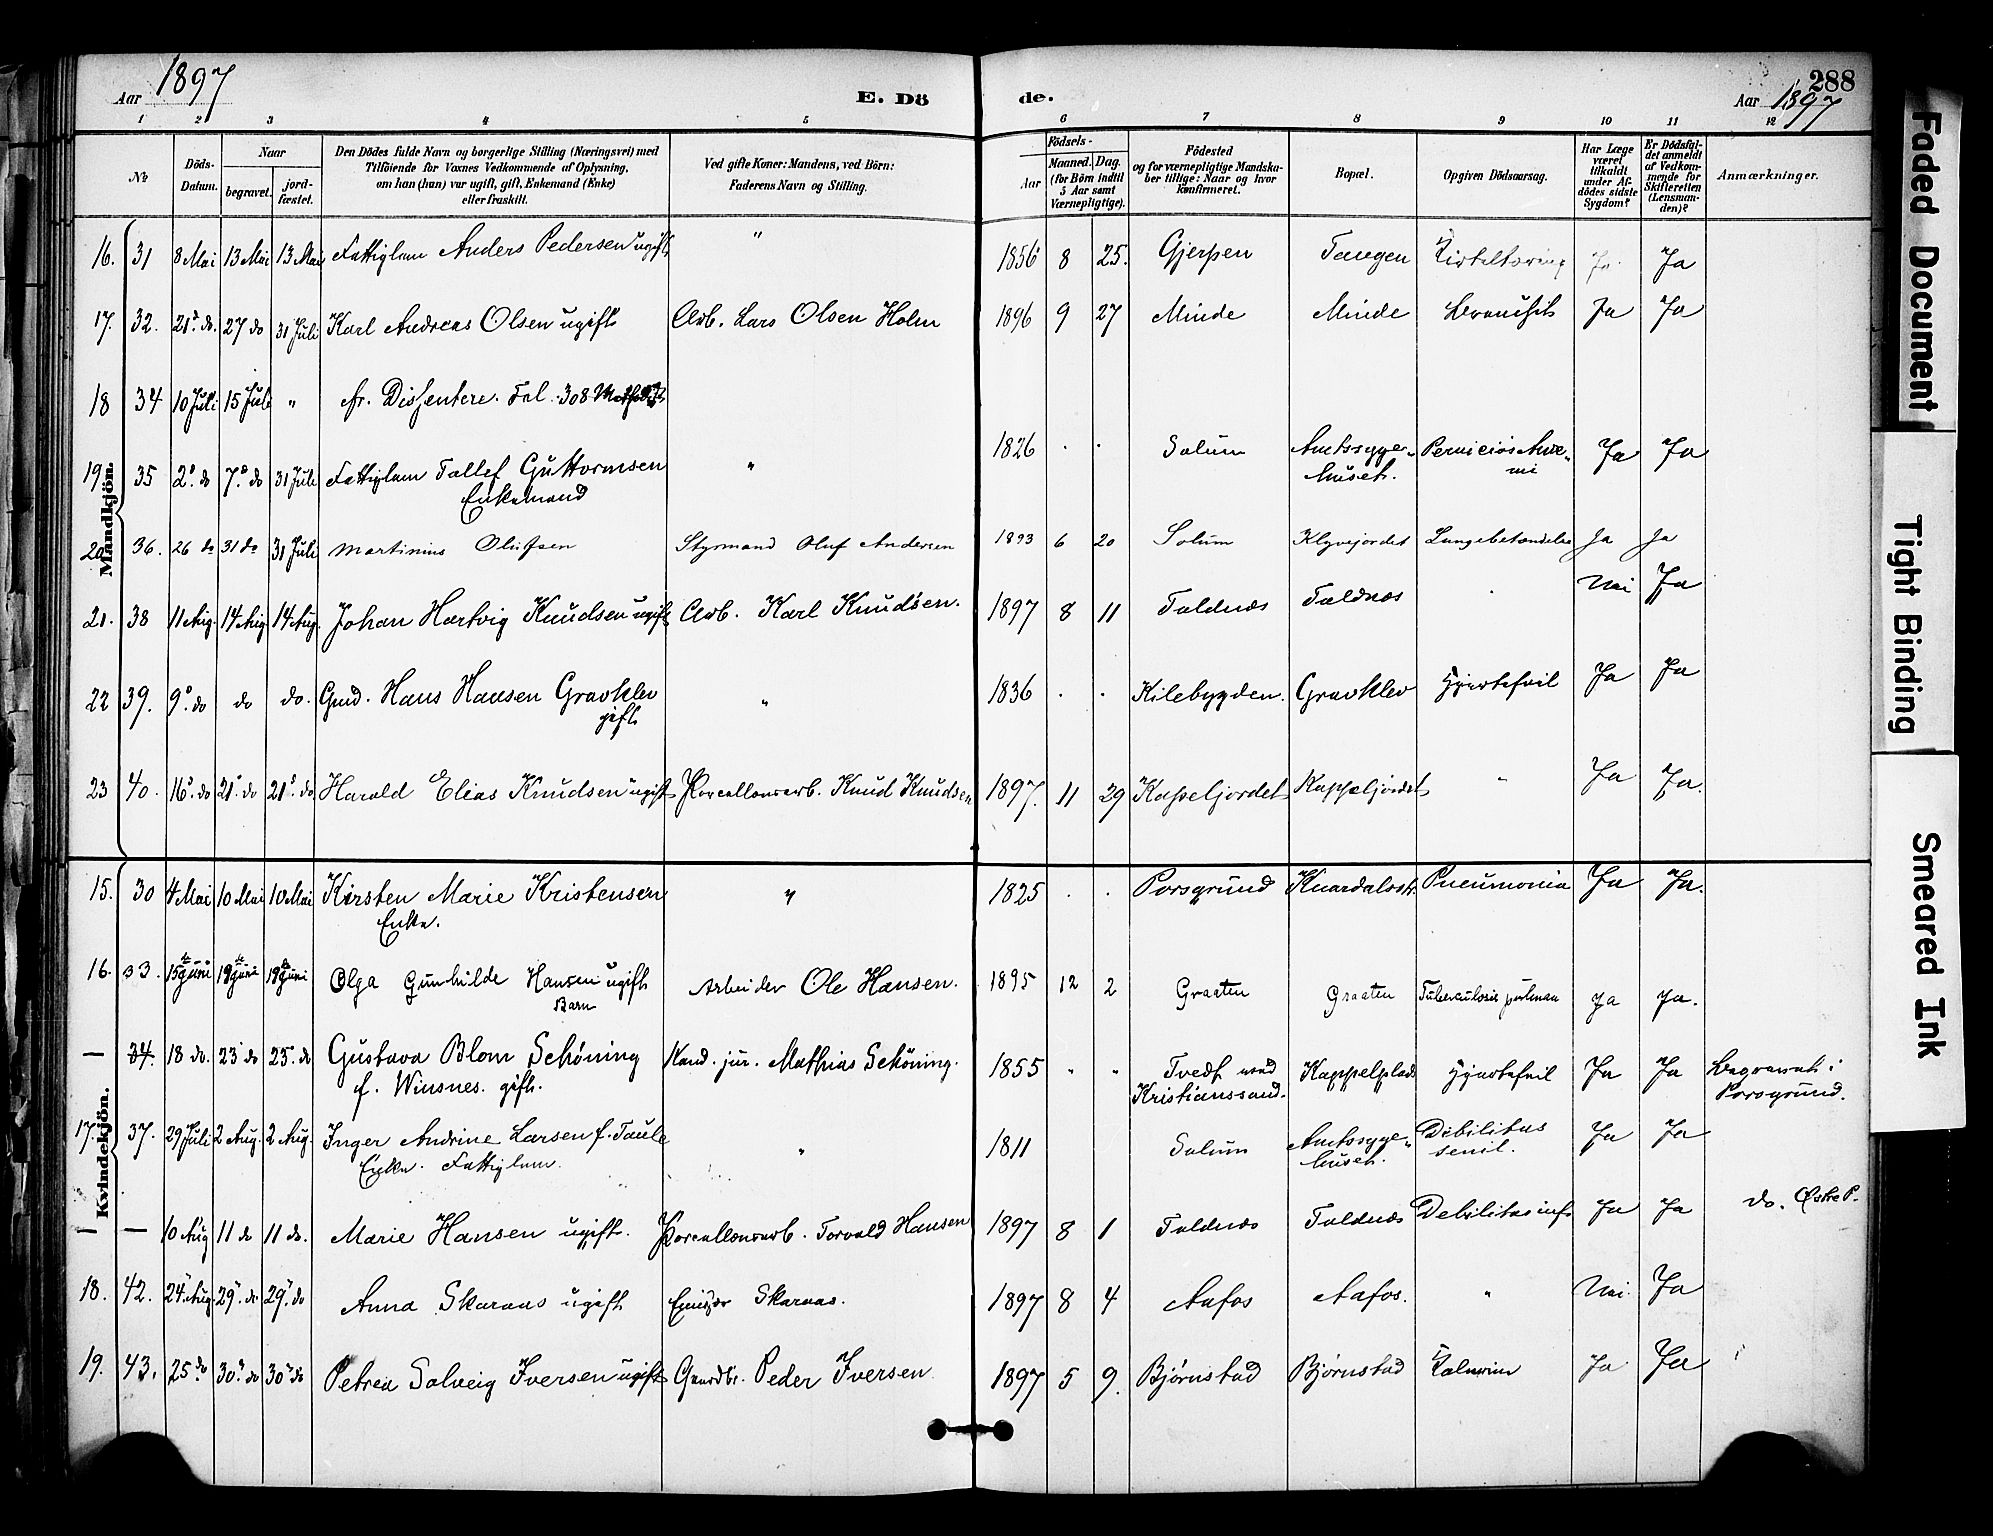 1897
Aar
E. Dö
de.
288
Aar 1897
1 2 3 4 5 6 7 8 9 10 11 12
No
Döds-Datum.
Naar
begravet.
jord-fæstet.
Den Dödes fulde Navn og borgerlige Stilling (Næringsvei) med
Tilföiende for Voxnes Vedkommende af Oplysning,
om han (hun) var ugift, gift, Enkemand (Enke)
eller fraskilt.
Ved gifte Koner: Mandens, ved Börn:
Faderens Navn og Stilling.
Födsels-
Aar
Maaned. Dag.
(for Börn indtil
5 Aar samt
Værnepligtige).
Födested
og for værnepligtige Mandska-
ber tillige: Naar og hvor
konfirmeret.
Bopæl.
Opgiven Dödsaarsag.
Har Læge
været
tilkaldt
under Af-
dödes sidste
Sygdom?
Er Dödsfal-
det anmeldt
af Vedkom-
mende for
Skifteretten
(Lensman-
den)?
Anmærkninger.
Mandkjön.
16. 31 8 Mai 13 Mai 13 Mai Fattiglem Anders Pedersen ugift " 1856 8 25. Gjerpen Tangen Ja Ja
17. 32. 21. do. 27 do 31 Juli Karl Andreas Olsen ugift Arb. Lars Olsen Holm 1896 9 27 Minde Minde Ja Ja
18 34 10 Juli 15 Juli " fr. Dissentere. Fol. 308
19 35 2. do 7. do 31 Juli Fattiglem Tallef Guttormsen
Enkemand
" 1826 . . Solum Amtssyge-
huset.
Perniciøs Anæ-
mi
Ja Ja
20 36. 26 do 31 do 31 Juli Martinius Olufsen Styrmand Oluf Andersen 1893 6 20 Solum Klyvejordet Lungebetændelse Ja Ja
21. 38 11 Aug. 14 Aug 14 Aug. Johan Hartvig Knudsen ugift Arb. Karl Knudsen. 1897 8 11 Foldnæs Foldnæs . Nei Ja
22 39. 9. do do do. Gmd. Hans Hansen Gravklev
gift
" 1836 . . Kilebygden. Gravklev Hjertefeil Ja Ja
23 40. 16. do 21. do 21. do Harald Elias Knudsen ugift Porcellensarb. Knud Knudsen 1897. 11 29 Kappeljordet Kappeljordet " Ja Ja.
Kvindekjön.
15. 30 4 Mai 10 Mai 10 Mai Kirsten Marie Kristensen
Enke.
" 1825 . . Porsgrund Knardalsstr. Pneumonia Ja Ja.
16. 33. 15 Juni 19 Juni 19 Juni Olga Gunhilde Hansen ugift
Barn
Arbeider Ole Hansen. 1895 12 2 Graaten Graaten Tuberculosis pulmon Ja Ja.
— 34. 18 do. 23 do 23. do Gustava Blom Schöning
f. Winsnes. gift.
Kand. jur. Mathias Schöning. 1855 " " Tvedt ved
Kristianssand.
Kappelplads Hjertefeil Ja Ja Begravet i
Porsgrund.
17. 37. 29 Juli 2 Aug. 2 Aug. Inger Andrine Larsen f. Taule
Enke. Fattiglem.
" 1811 Solum Amtssyge-
huset.
Debilitas
senil.
Ja Ja
— — 10 Aug 11 do 11 do. Marie Hansen ugift. Porcellensarb. Torvald Hansen 1897 8 1 Foldnæs Foldnæs Debilitas inf. Ja Ja do. Østre P.
18. 42. 24. Aug. 29. do 29. do Anna Skaraas ugift Skaraas. 1897 8 4 Aafos Aafos. " Nei. Ja
19. 43. 25. do 30. do 30. do Petrea Solveig Iversen ugift Gaardbr. Peder Iversen 1897 5 9. Bjørnstad Bjørnstad Ja Ja
Faded Document
Tight Binding
Smeared Ink